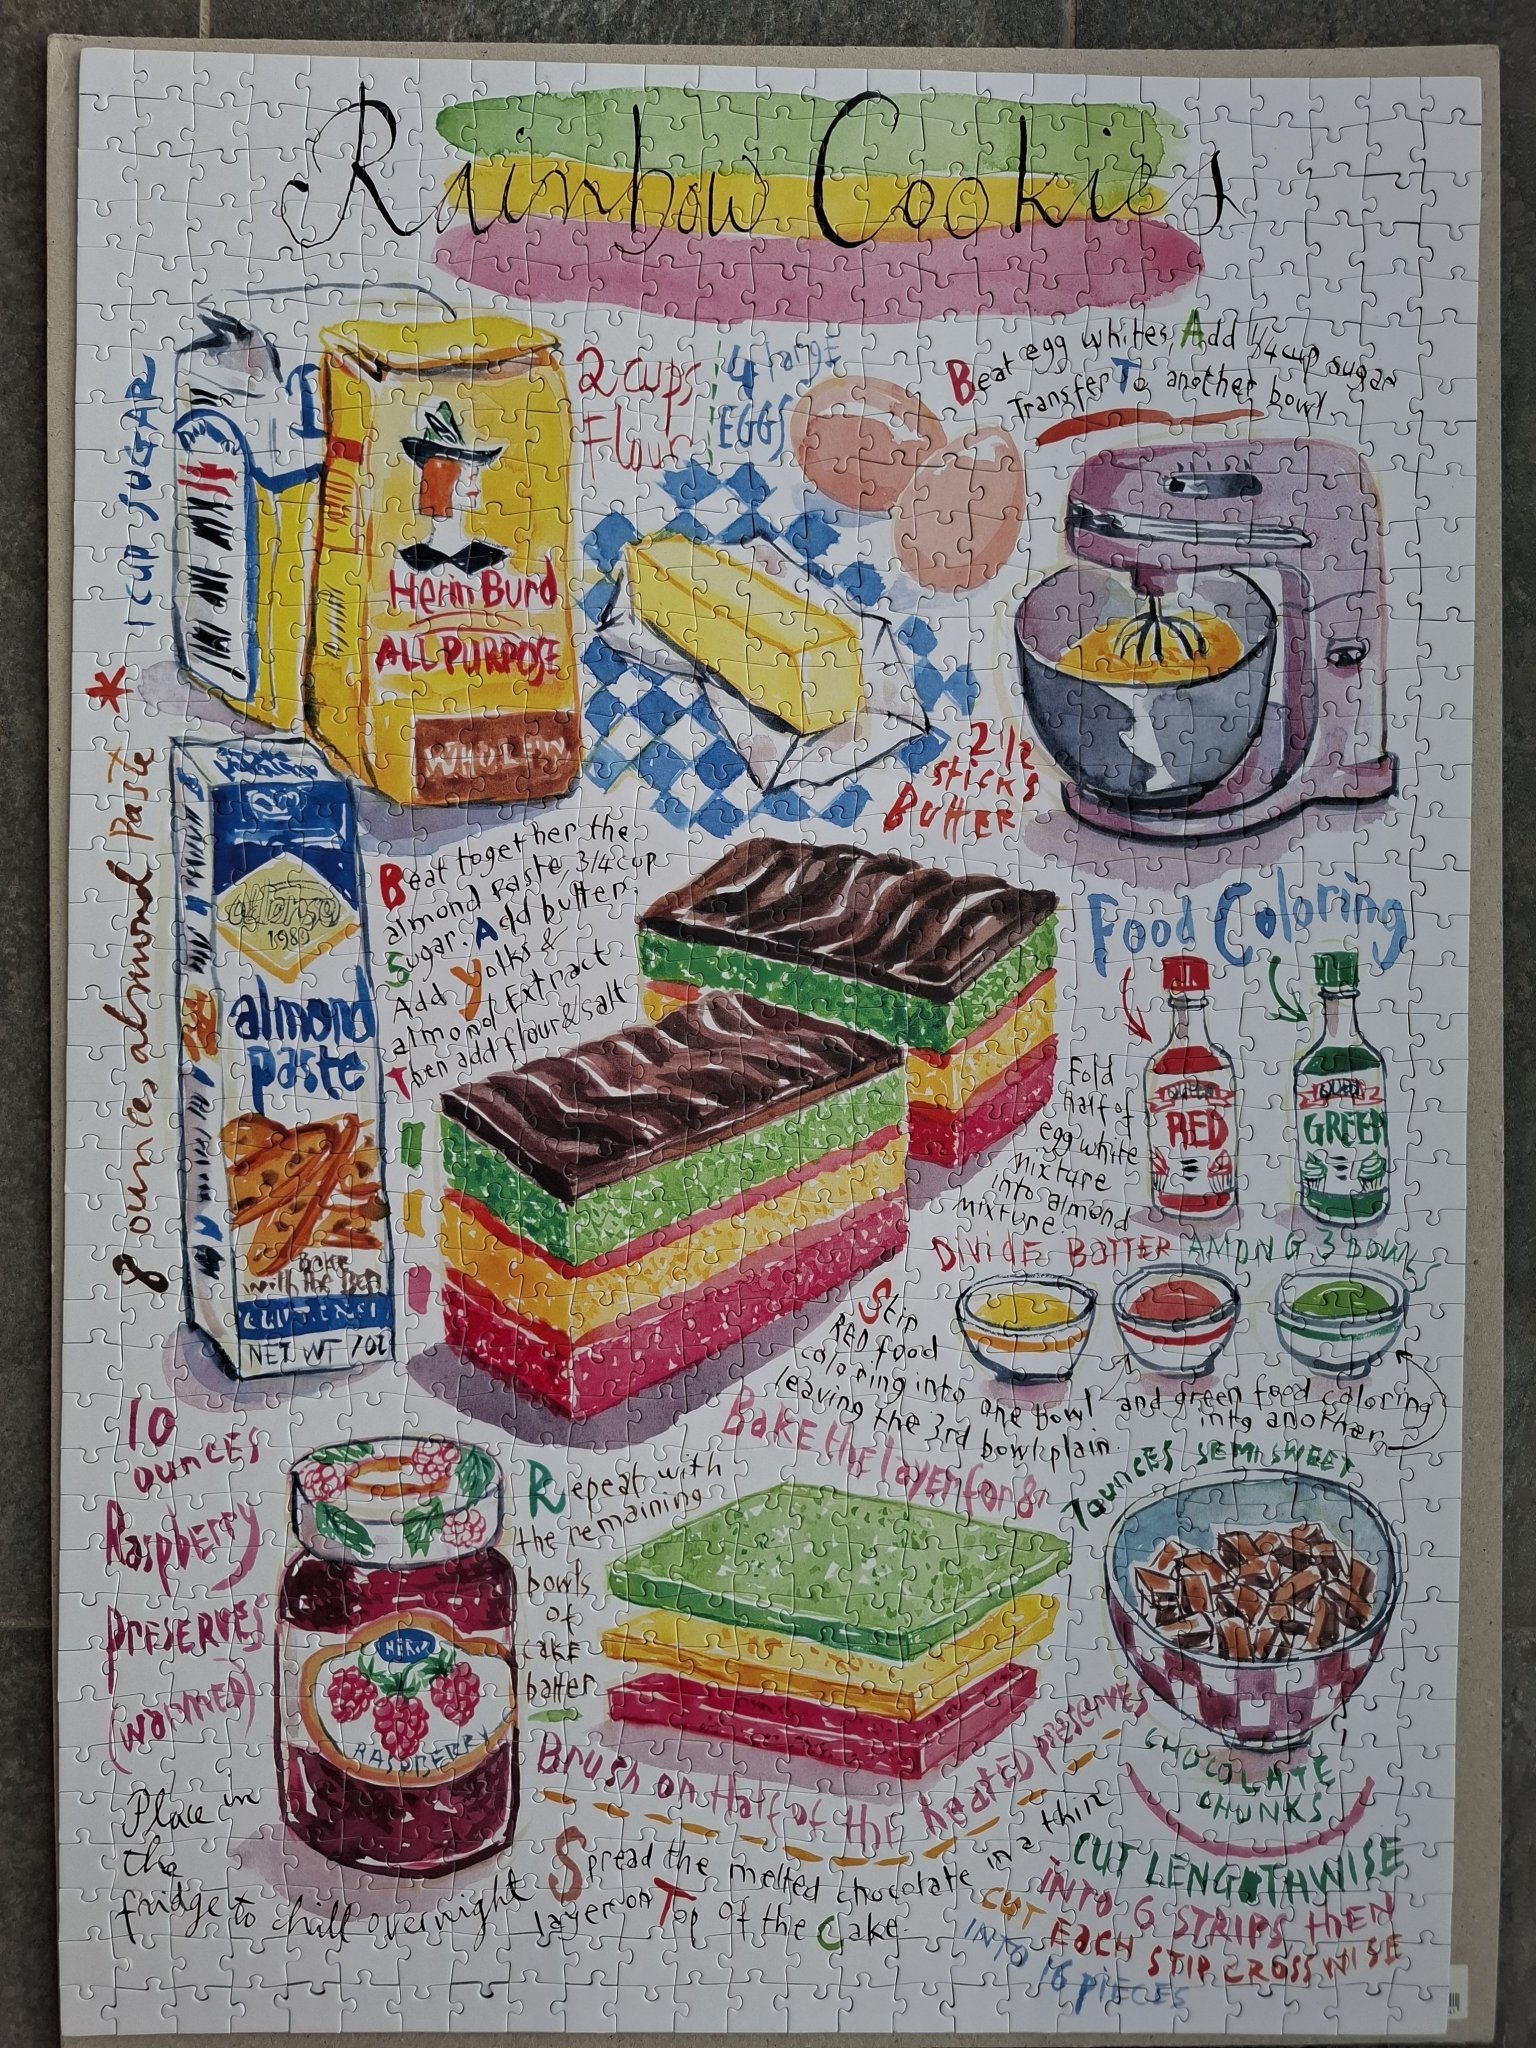 Rainbow Cookies
1 CUP SUGAR
2 cups
Flour
4 large
EGGS
Beat egg whites, Add 1/4 cup sugar
Transfer To another bowl
Herin Burd
ALL PURPOSE
2 1/2
sticks
Butter
*
8 ounces almond Paste
1980
almond
paste
Bake
with the
NET WT 7OZ
Beat together the
almond Paste, 3/4 cup
Sugar. Add butter.
Add yolks &
almond Extract.
Then add flour & salt
Food Coloring
RED
GREEN
Fold
half of
egg white
mixture
into almond
mixture.
DIVIDE BATTER AMONG 3 BOWLS
Stir
RED food
coloring into one bowl and green food coloring
leaving the 3rd bowl plain. into another
Bake the layer for 8
10
ounces
Raspberry
preserves
(warmed)
RASPBERRY
Repeat with
the remaining
bowls
of
cake
batter
7 ounces SEMI SWEET
CHOCOLATE
CHUNKS
Brush on Half of the heated preserves
Place in
the
fridge to chill overnight
Spread the melted chocolate in a thin
layer on Top of the Cake.
CUT LENGTHWISE
INTO 6 STRIPS then
CUT EACH STIP CROSSWISE
INTO 16 PIECES